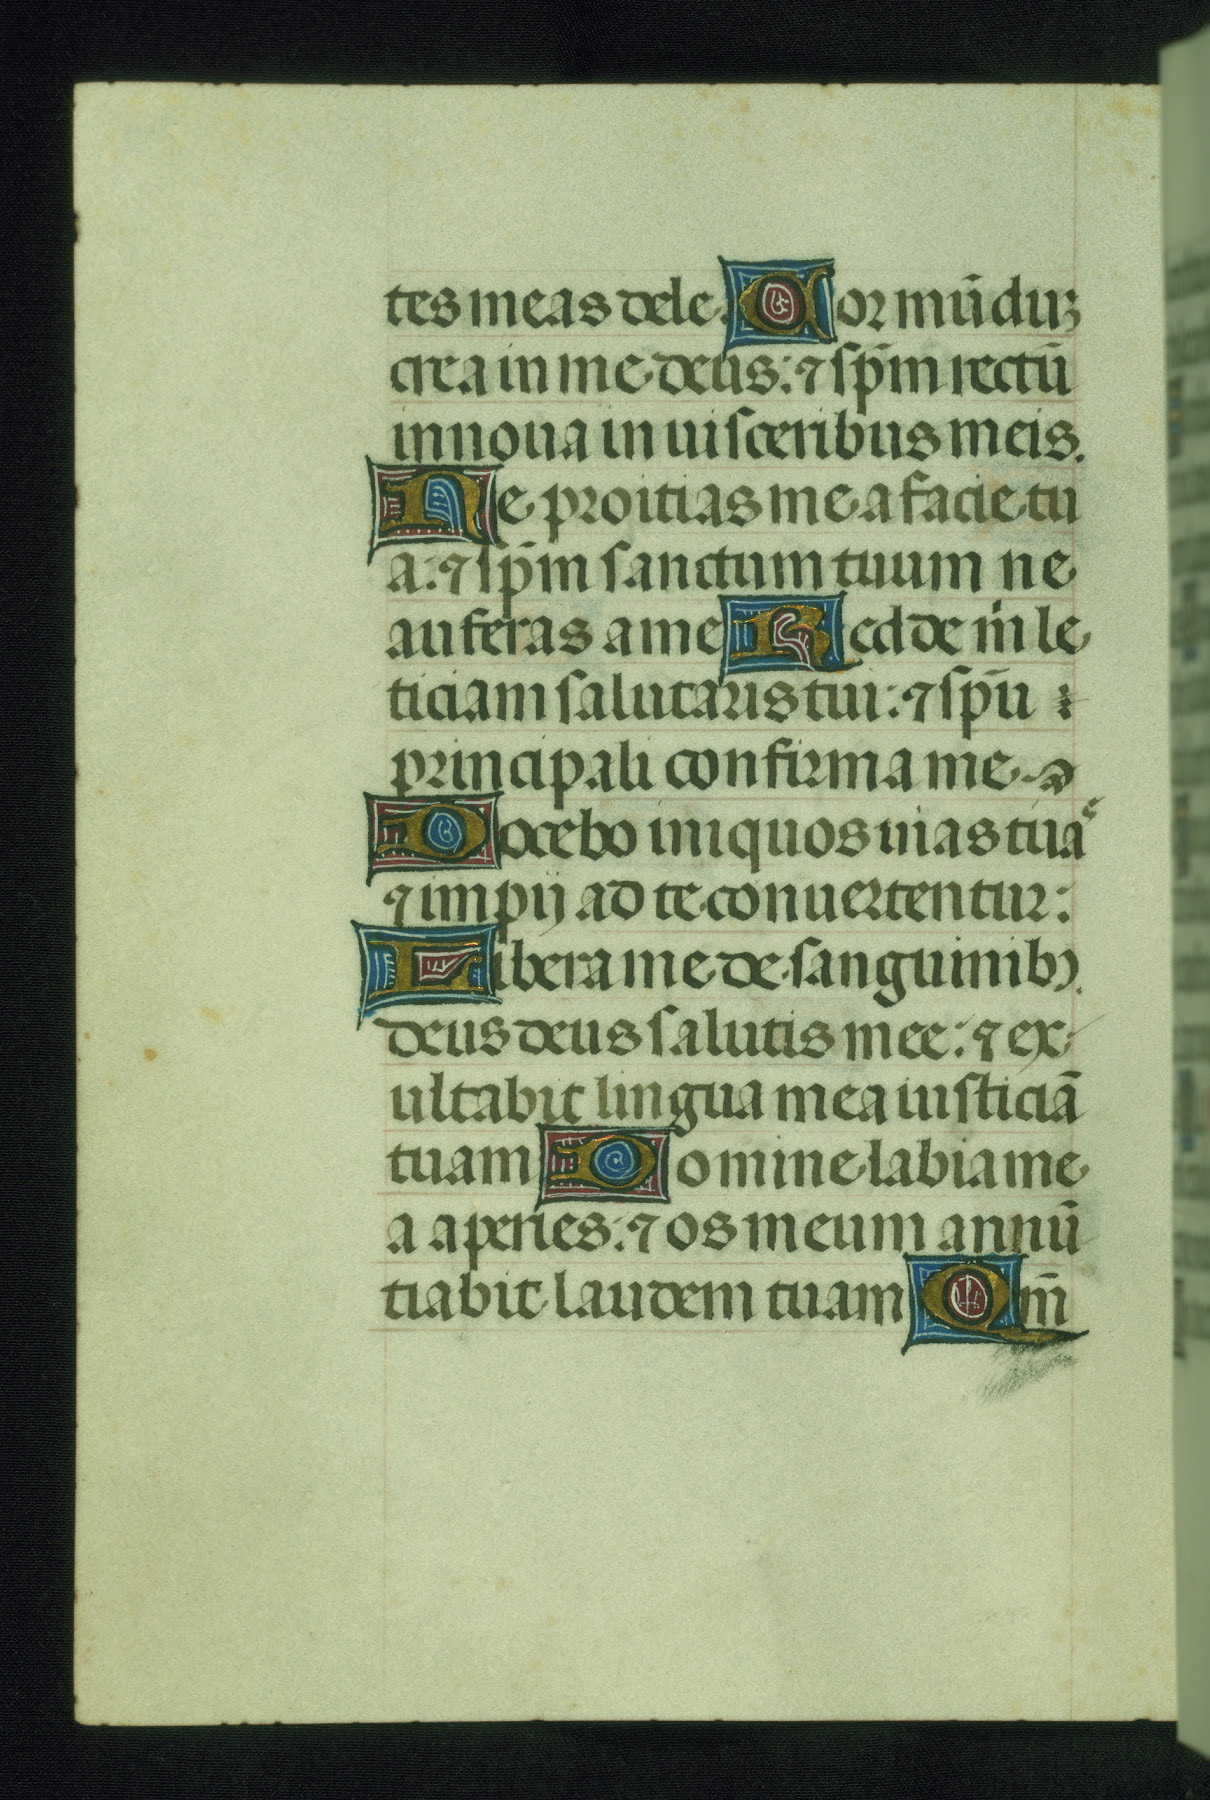 tes meas dele. Cor mūduꝫ
crea in me deus: ⁊ sp̄m rectū
innoua in uisceribus meis.
Ne proitias me a facie tu
a: ⁊ sp̄m sanctum tuum ne
auferas a me Redde m̄ le
ticiam salutaris tui: ⁊ sp̄u
principali confirma me
Docebo iniquos uias tuaˢ
⁊ impij ad te conuertentur:
Libera me de sanguinibꝰ.
deus deus salutis mee: ⁊ ex
ultabit lingua mea iusticiā
tuam Domine labia me
a aperies: ⁊ os meum annū
tiabit laudem tuam Qm̄